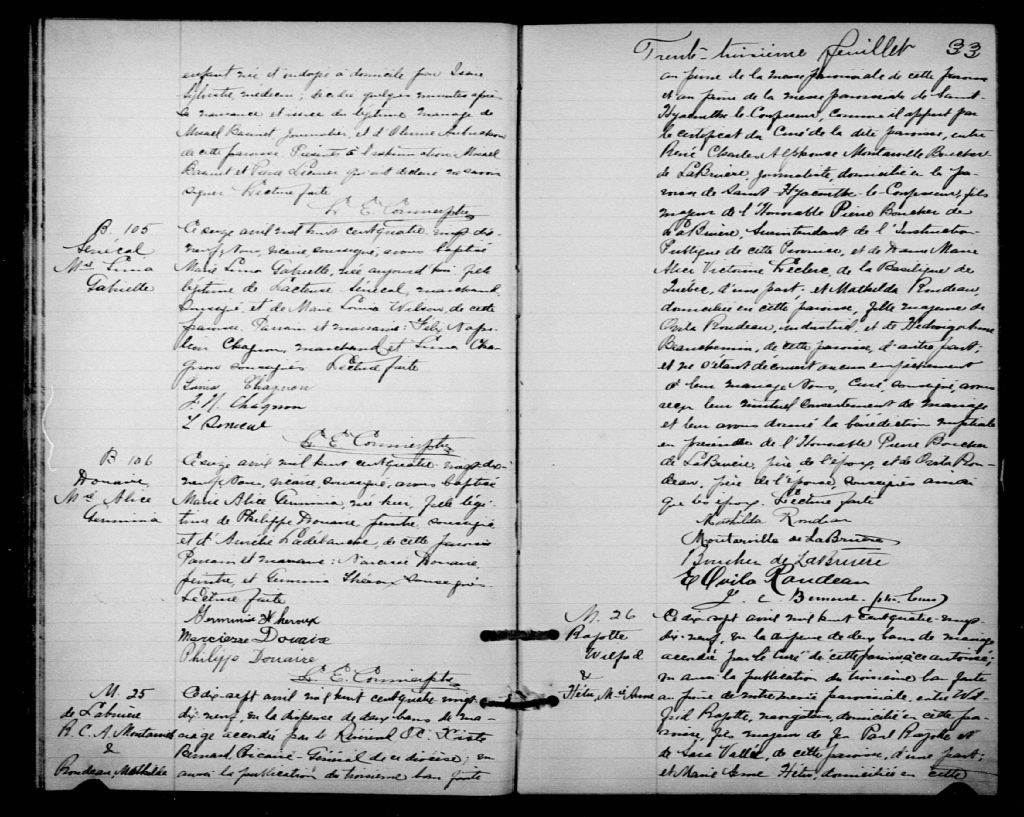 enfant née et ondoyée à domicile par
Sylvestre, médecin; décédée quelques minutes après
sa naissance et issue du légitime mariage de
Misael Brunet Journalier, et d'
de cette paroisse. Présents à l'inhumation: Misael
Brunet et qui ont déclaré ne savoir
signer Lecture faite
B. 105
Senécal
Mie Luna
Gabrielle
Ce seize avril mil huit cent quatre vingt dix-
neuf, nous, vicaire, soussigné, avons baptisé
Marie Luna Gabrielle, née aujourd'hui fille
légitime de Senécal, marchand,
soussigné, et de Marie Wilson, de cette
paroisse. Parrain et marraine: Félix Napo-
léon Chagnon, marchand et Luna Cha-
gnon soussignés Lecture faite
Luna Chagnon
F. N. Chagnon
L Senecal
B 106
Douaire
Mie Alice
Germinia
Ce seize avril mil huit cent quatre vingt dix-
neuf nous, vicaire, soussigné, avons baptisé
Marie Alice Germinia, née hier, fille légi-
time de Philippe Douaire, peintre, soussigné
et d'Aurélie de cette paroisse
Parrain et marraine: Narcisse Douaire
peintre, et Germinia Theroux soussignés
Lecture faite
Germinia Theroux
Narcisse Douaire
Philippe Douaire
M. 25
de Labruère
R. C. A. Montarvil
&
Rondeau, Mathilda
Ce dix-sept avril mil huit cent quatre vingt
dix-neuf, vu la dispense de deux bans de ma-
riage accordée par le Révérend
Bernard, Vicaire-Général de ce diocèse; vu
aussi la publication du troisième ban faite
Trente-troisième feuillet 33
au prône de la messe paroissiale de cette paroisse
et au prône de la messe paroissiale de Saint-
Hyacinthe le Confesseur, comme il appert par
le certificat du Curé de la dite paroisse, entre
René Charles Alphonse Montarville Boucher
de LaBruère, journaliste, domicilié en la pa-
roisse de Saint-Hyacinthe-le-Confesseur, fils
majeur de l'Honorable Pierre Boucher de
LaBruère, Surintendant de l'Instruction
Publique de cette Province, et de Dame Marie
Alice Victorine Leclerc, de la Basilique de
Québec, d'une part, et Mathilda Rondeau,
domiciliée en cette paroisse, fille majeure de
Ovila Rondeau, industriel, et de Hedwidge Anne
Beauchemin, de cette paroisse, d'autre part;
et ne s'étant découvert aucun empêchement
à leur mariage nous, Curé, soussigné, avons
reçu leur mutuel consentement de mariage
et leur avons donné la bénédiction nuptiale
en présence de l'Honorable Pierre Boucher
de LaBruère, père de l'époux, et de Ovila Ron-
deau, père de l'épouse, soussignés ainsi
que les époux. Lecture faite
Mathilda Rondeau
Montarville de LaBruère
Boucher de LaBruère
E Ovila Rondeau
M. 26
Rajotte
Wilfrid
&
Hétu, Mie Anne
Ce dix-sept avril mil huit cent quatre-vingt-
dix-neuf, vu la dispense de deux bans de mariage
accordée par le Curé de cette paroisse à ce autorisé;
vu aussi la publication du troisième ban faite
au prône de notre messe paroissiale, entre Wil-
frid Rajotte, navigateur, domicilié en cette pa-
roisse, fils majeur de feu Paul Rajotte et
de Vallée, de cette paroisse, d'une part;
et Marie Anne Hétu, domiciliée en cette